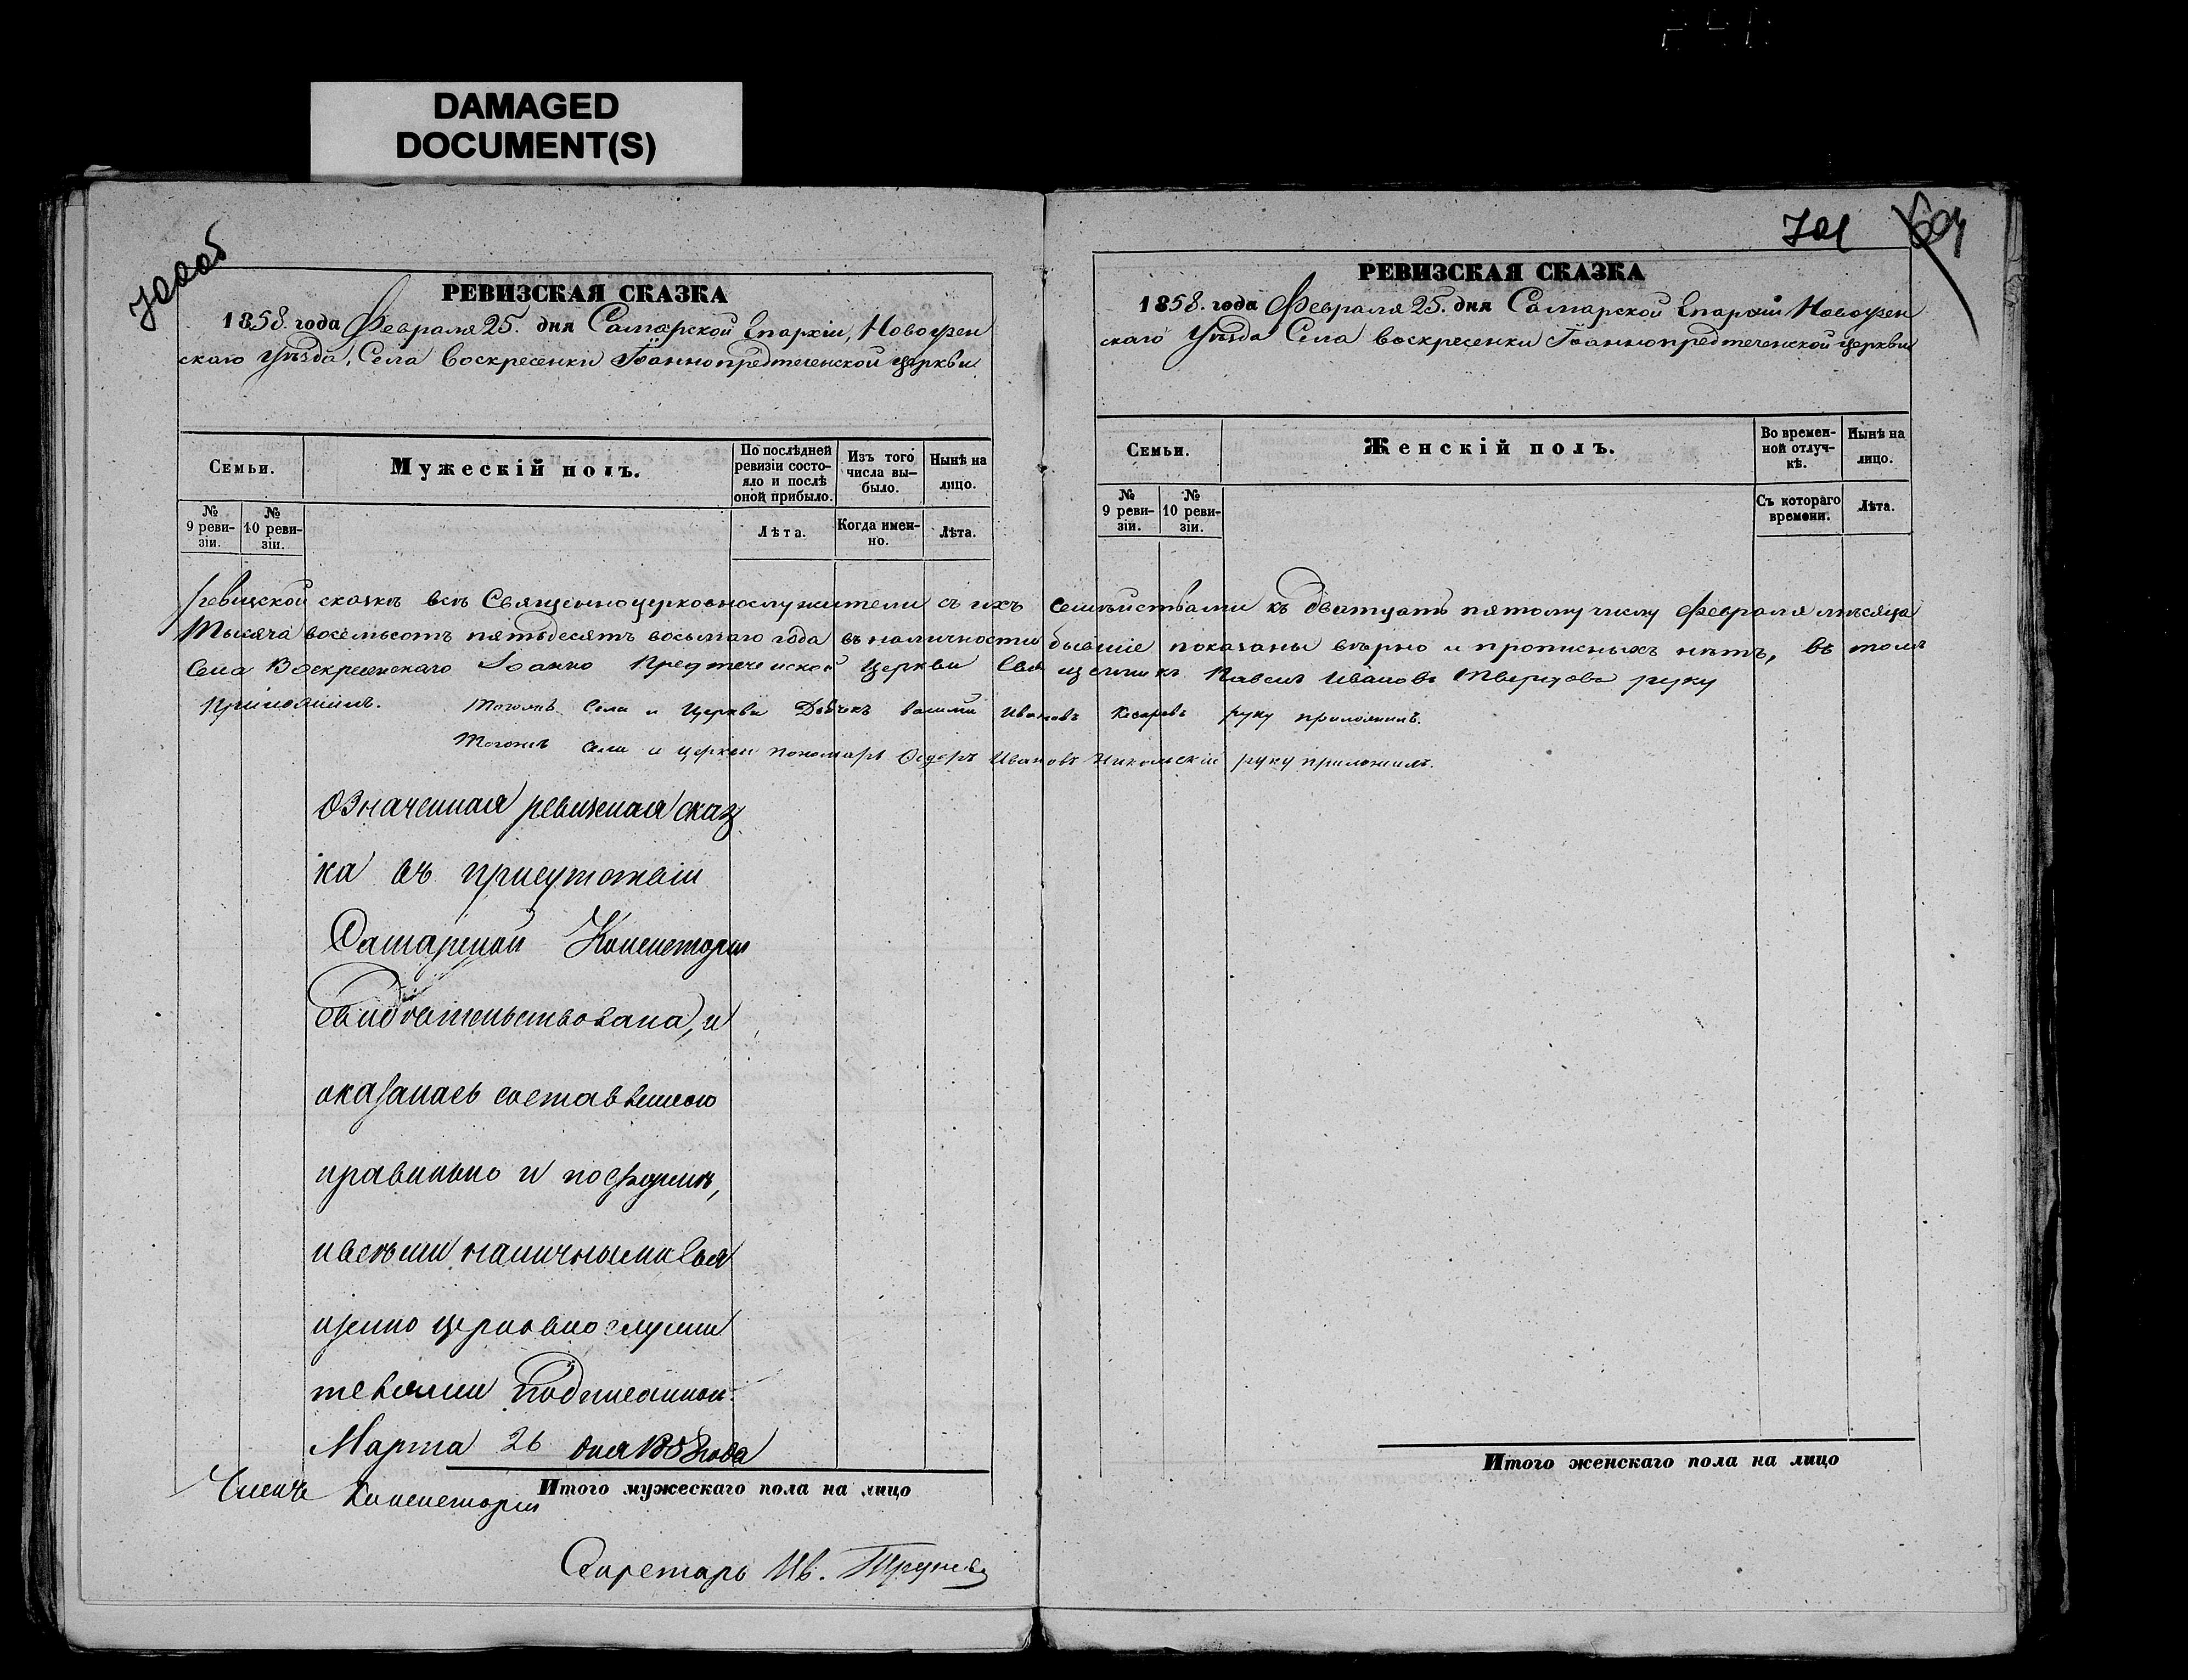 DAMAGED
DOCUMENT(S)
700об
РЕВИЗСКАЯ СКАЗКА
1858. года Февраля 25. дня Самарской Епархіи, Новоузен
скаго Уѣзда, Села Воскресенки Іоаннопредтеченской церкви
Семьи.
Мужескій полъ.
По послѣдней ревизіи состо-
яло и послѣ оной прибыло.
Изъ того числа вы-
было.
Нынѣ на лицо.
№ 9 реви-
зіи.
№ 10 реви-
зіи.
Лѣта.
Когда имен-
но.
Лѣта.
701
РЕВИЗСКАЯ СКАЗКА
1858. года Февраля 25. дня Самарской Епархіи Новоузен
скаго Уѣзда Села Воскресенки Іоаннопредтеченской церкви
Семьи.
Женскій полъ.
Во времен-
ной отлуч-
кѣ.
Нынѣ на лицо.
№ 9 реви-
зіи.
№ 10 реви-
зіи.
Съ котораго времени.
Лѣта.
ревизской сказкѣ всѣ Священноцерковнослужители съ ихъ семѣйствами къ дватцать пятому числу Февраля мѣсяца
Тысяча восемьсотъ пятьдесятъ восьмаго года въ наличности бывшіе показаны вѣрно и прописныхъ нѣтъ, въ томъ
Села Воскресенскаго Іоанно Предтеченской Церкви Священникъ Павелъ Ивановъ руку
приложилъ.
Тогожъ Села и Церкви Дьячокъ Василій Ивановъ руку приложилъ.
Тогожъ Села и церкви пономарь Ѳедоръ Ивановъ Никольскій руку приложилъ.
Означенная ревизская сказ
ка въ присутствіи
Самарской Консисторіи
свидѣтельствована, и
оказалась составленною
правильно и по формѣ,
и всѣми наличными Свя
щенно церковнослужи
телями подписанною.
Марта 26 дня 1858 года
Итого мужескаго пола на лицо
Членъ Консисторіи
Секретарь Ив.
Итого женскаго пола на лицо